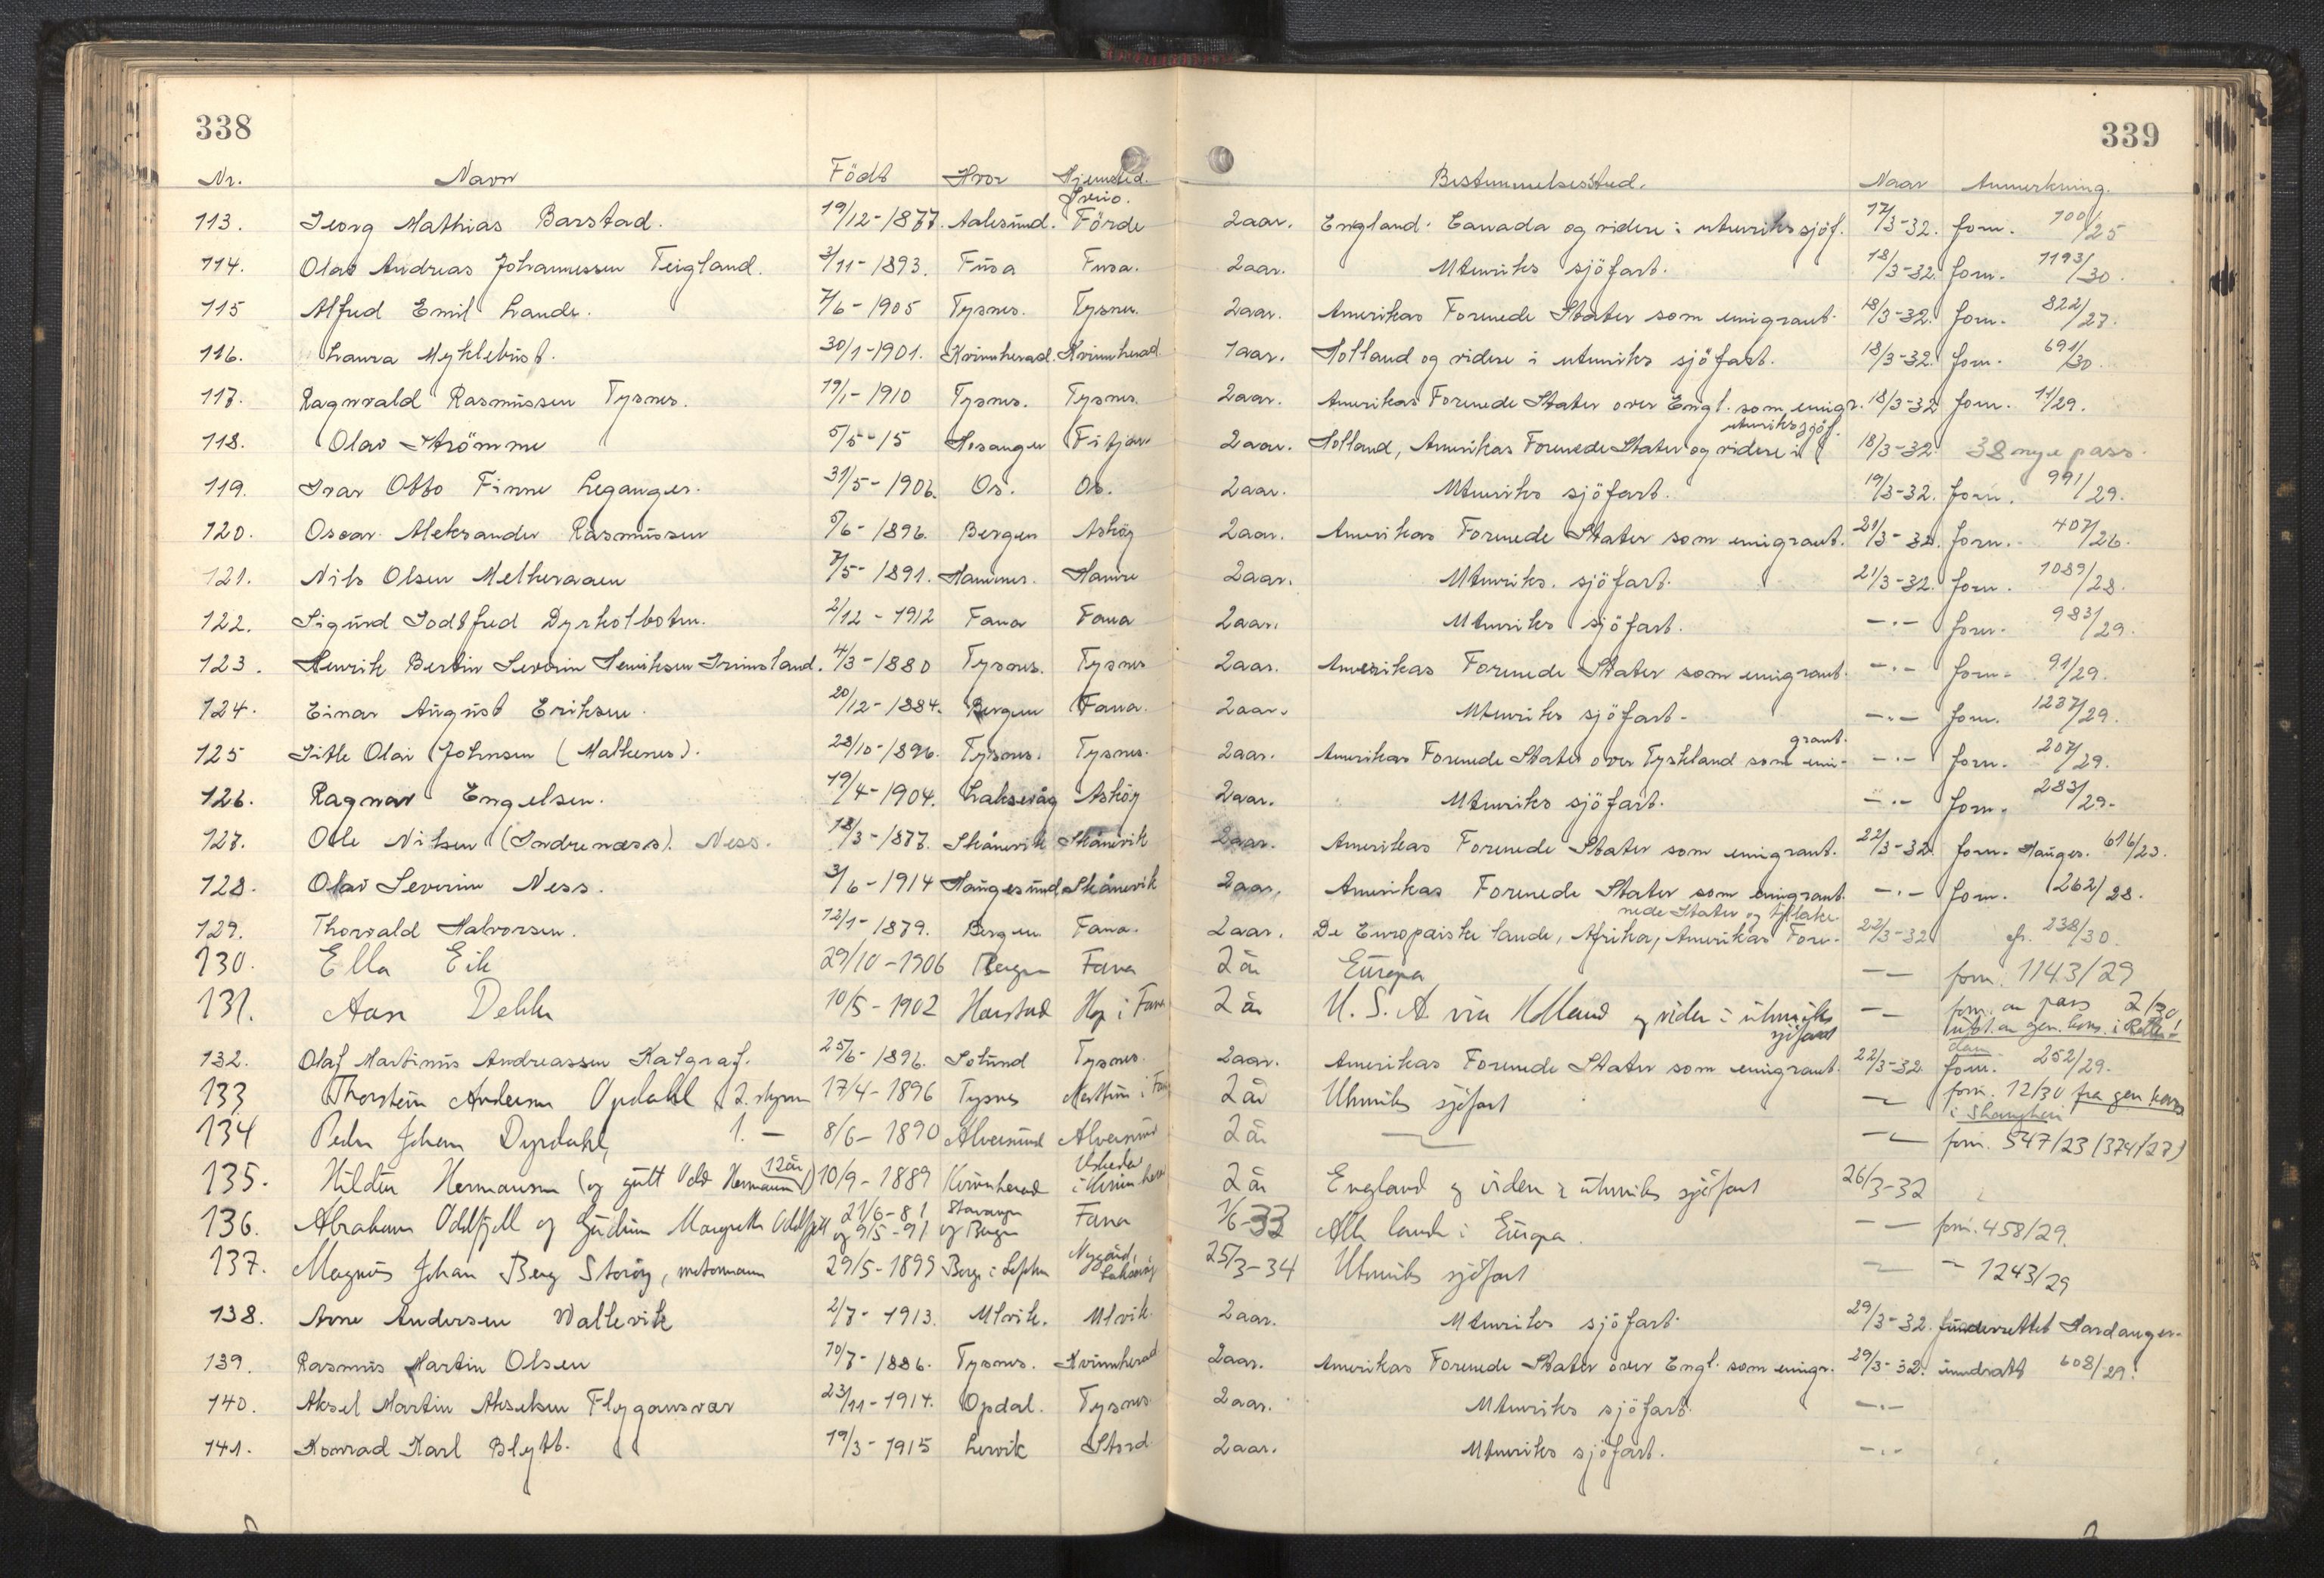 338
339
Nr. Navn Født Hvor Hjemsted. Bestemmelsessted. Naar Anmerkning.
113. Georg Mathias Barstad. 19/12-1877. Aalesund. Förde 2 aar. England: Canada og videre i utenriks sjöf. 17/3-32. forn. 100/25
114. Olav Andreas Johannessen Teigland. 3/11-1893. Fusa Fusa. 2 aar. Utenriks sjöfart. 18/3-32. forn. 1193/30.
115 Alfred Emil Lande. 7/6-1905 Tysnes. Tysnes. 2 aar. Amerikas Forenede Stater som emigrant. 18/3-32. forn. 822/27.
116. Laura Myklebust. 30/1-1901. Kvinnherad. Kvinnherad 1 aar. Holland og videre i utenriks sjöfart. 18/3-32. forn. 691/30.
117. Ragnvald Rasmussen Tysnes. 19/1-1910 Tysnes. Tysnes. 2 aar. Amerikas Forenede Stater over Engl. som emigr. 18/3-32 forn. 11/29.
118. Olav Strömme 5/5-15 Hosanger Fitjar 2 aar. Holland, Amerikas Forenede Stater og videre i utenriks sjöf. 18/3-32. 38 nye pass.
119. Ivar Otto Finne Leganger. 31/5-1906. Os. Os. 2 aar. Utenriks sjöfart. 19/3-32. forn. 991/29.
120. Oscar Aleksander Rasmussen 5/6-1896. Bergen Asköy 2 aar. Amerikas Forenede Stater som emigrant. 21/3-32. forn. 407/26.
121. Nils Olsen Melheraaen 7/5-1891. Hammer. Hamre 2 aar. Utenriks sjöfart. 21/3-32. forn. 1089/28.
122. Sigurd Godtfred Dyrkolbotn. 2/12-1912 Fana Fana 2 aar. Utenriks sjöfart. -.- forn. 983/29.
123. Henrik Bertin Severin Henriksen Grimsland. 4/3-1880 Tysnes. Tysnes 2 aar. Amerikas Forenede Stater som emigrant. -.- forn. 91/29.
124. Einar August Eriksen. 20/12-1884. Bergen Fana. 2 aar. Utenriks sjöfart. -.- forn. 1237/29.
125 Gitle Olai Johnsen (Malkenes). 28/10-1896. Tysnes. Tysnes. 2 aar. Amerikas Forenede Stater over Tyskland som emigrant. -.- forn. 207/29.
126. Ragnar Engelsen. 19/4-1904. Laksevåg Asköy 2 aar. Utenriks sjöfart. -.- forn. 283/29.
127. Ole Nilsen (Indrenæss). Ness. 18/3-1877. Skånevik Skånevik 2 aar. Amerikas Forenede Stater som emigrant. 22/3-32. forn. Hauges. 616/23.
128. Olav Severin Ness. 3/6-1914 Haugesund Skånevik 2 aar. Amerikas Forenede Stater som emigrant. -.- forn. 1262/28.
129. Thorvald Halvorsen. 12/1-1879. Bergen Fana. 2 aar. De Europæiske lande, Afrika, Amerikas Forenede Stater og tilbake. 22/3-32 fr. 238/30.
130. Ella Eik 29/10-1906 Bergen Fana 2 år Europa -- forn. 1143/29
131. Aase Dekke 10/5-1902 Harstad Hop i Fana 2 år U.S.A. via Holland og videre i utenriks sjöfart -- forn. av pass 2/30, utst. av gen. kons. i Rotterdam
132. Olaf Martinus Andreassen Kalgraf. 25/6-1896. Solund Tysnes. 2 aar. Amerikas Forenede Stater som emigrant. 22/3-32. forn. 252/29.
133 Thorstein Andersen Opdahl, 2. styrm 17/4-1896 Tysnes Nesttun i Fana 2 år Utenriks sjöfart -- forn. 12/30 fra gen kons i Shanghai
134 Peder Johan Dyrdahl, 1. - 8/6-1890 Alversund Alversund 2 år -- -- forn. 547/23 (374/27)
135. Hermansen (og gutt Odd Hermann 12 år) 10/9-1889 Kvinnherad Uskedal i Kvinnherad 2 år England og videre i utenriks sjöfart 26/3-32
136. Abraham Oddfjell og Gudrun Margrethe Oddfjell 21/6-81 og 9/5-91 Stavanger og Bergen Fana 1/6-33 Alle lande i Europa. -- forn. 458/29.
137. Magnus Johan Berg Storöy, motormann 29/5-1899 Laksevåg 25/3-34 Utenriks sjöfart -- - 1243/29
138. Arne Andersen Wallevik 2/7-1913. Ulvik. Ulvik. 2 aar. Utenriks sjöfart. 29/3-32. underrettet Hardanger.
139. Rasmus Martin Olsen 10/7-1886. Tysnes. Kvinnherad 2 aar. Amerikas Forenede Stater over Engl. som emigr. 29/3-32. inndratt 608/29.
140. Aksel Martin Akselsen Flygansvær 23/11-1914. Opdal. Tysnes. 2 aar. Utenriks sjöfart. -.-
141. Konrad Karl Blytt. 19/3-1915 Lervik Stord. 2 aar. Utenriks sjöfart. -.-